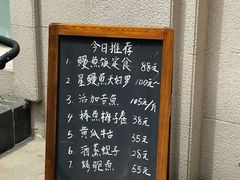 今日推荐
1. 鳗鱼饭定食 88元
2. 星鳗鱼天妇罗 100元~
3. 活加吉鱼 105元/斤
4. 榛鱼梅子卷 38元
5. 黄瓜 35元
6. 酒蒸蚬子 28元
7. 烤鱼 55元